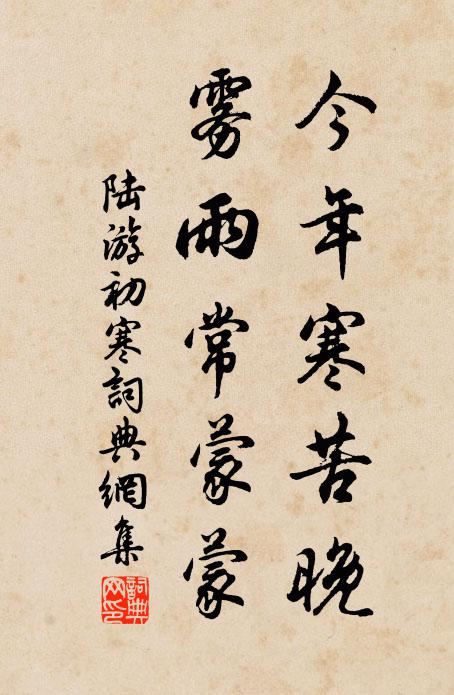 今年寒苦晚
雾雨常蒙蒙
陆游初寒詞典網集
詞典网印